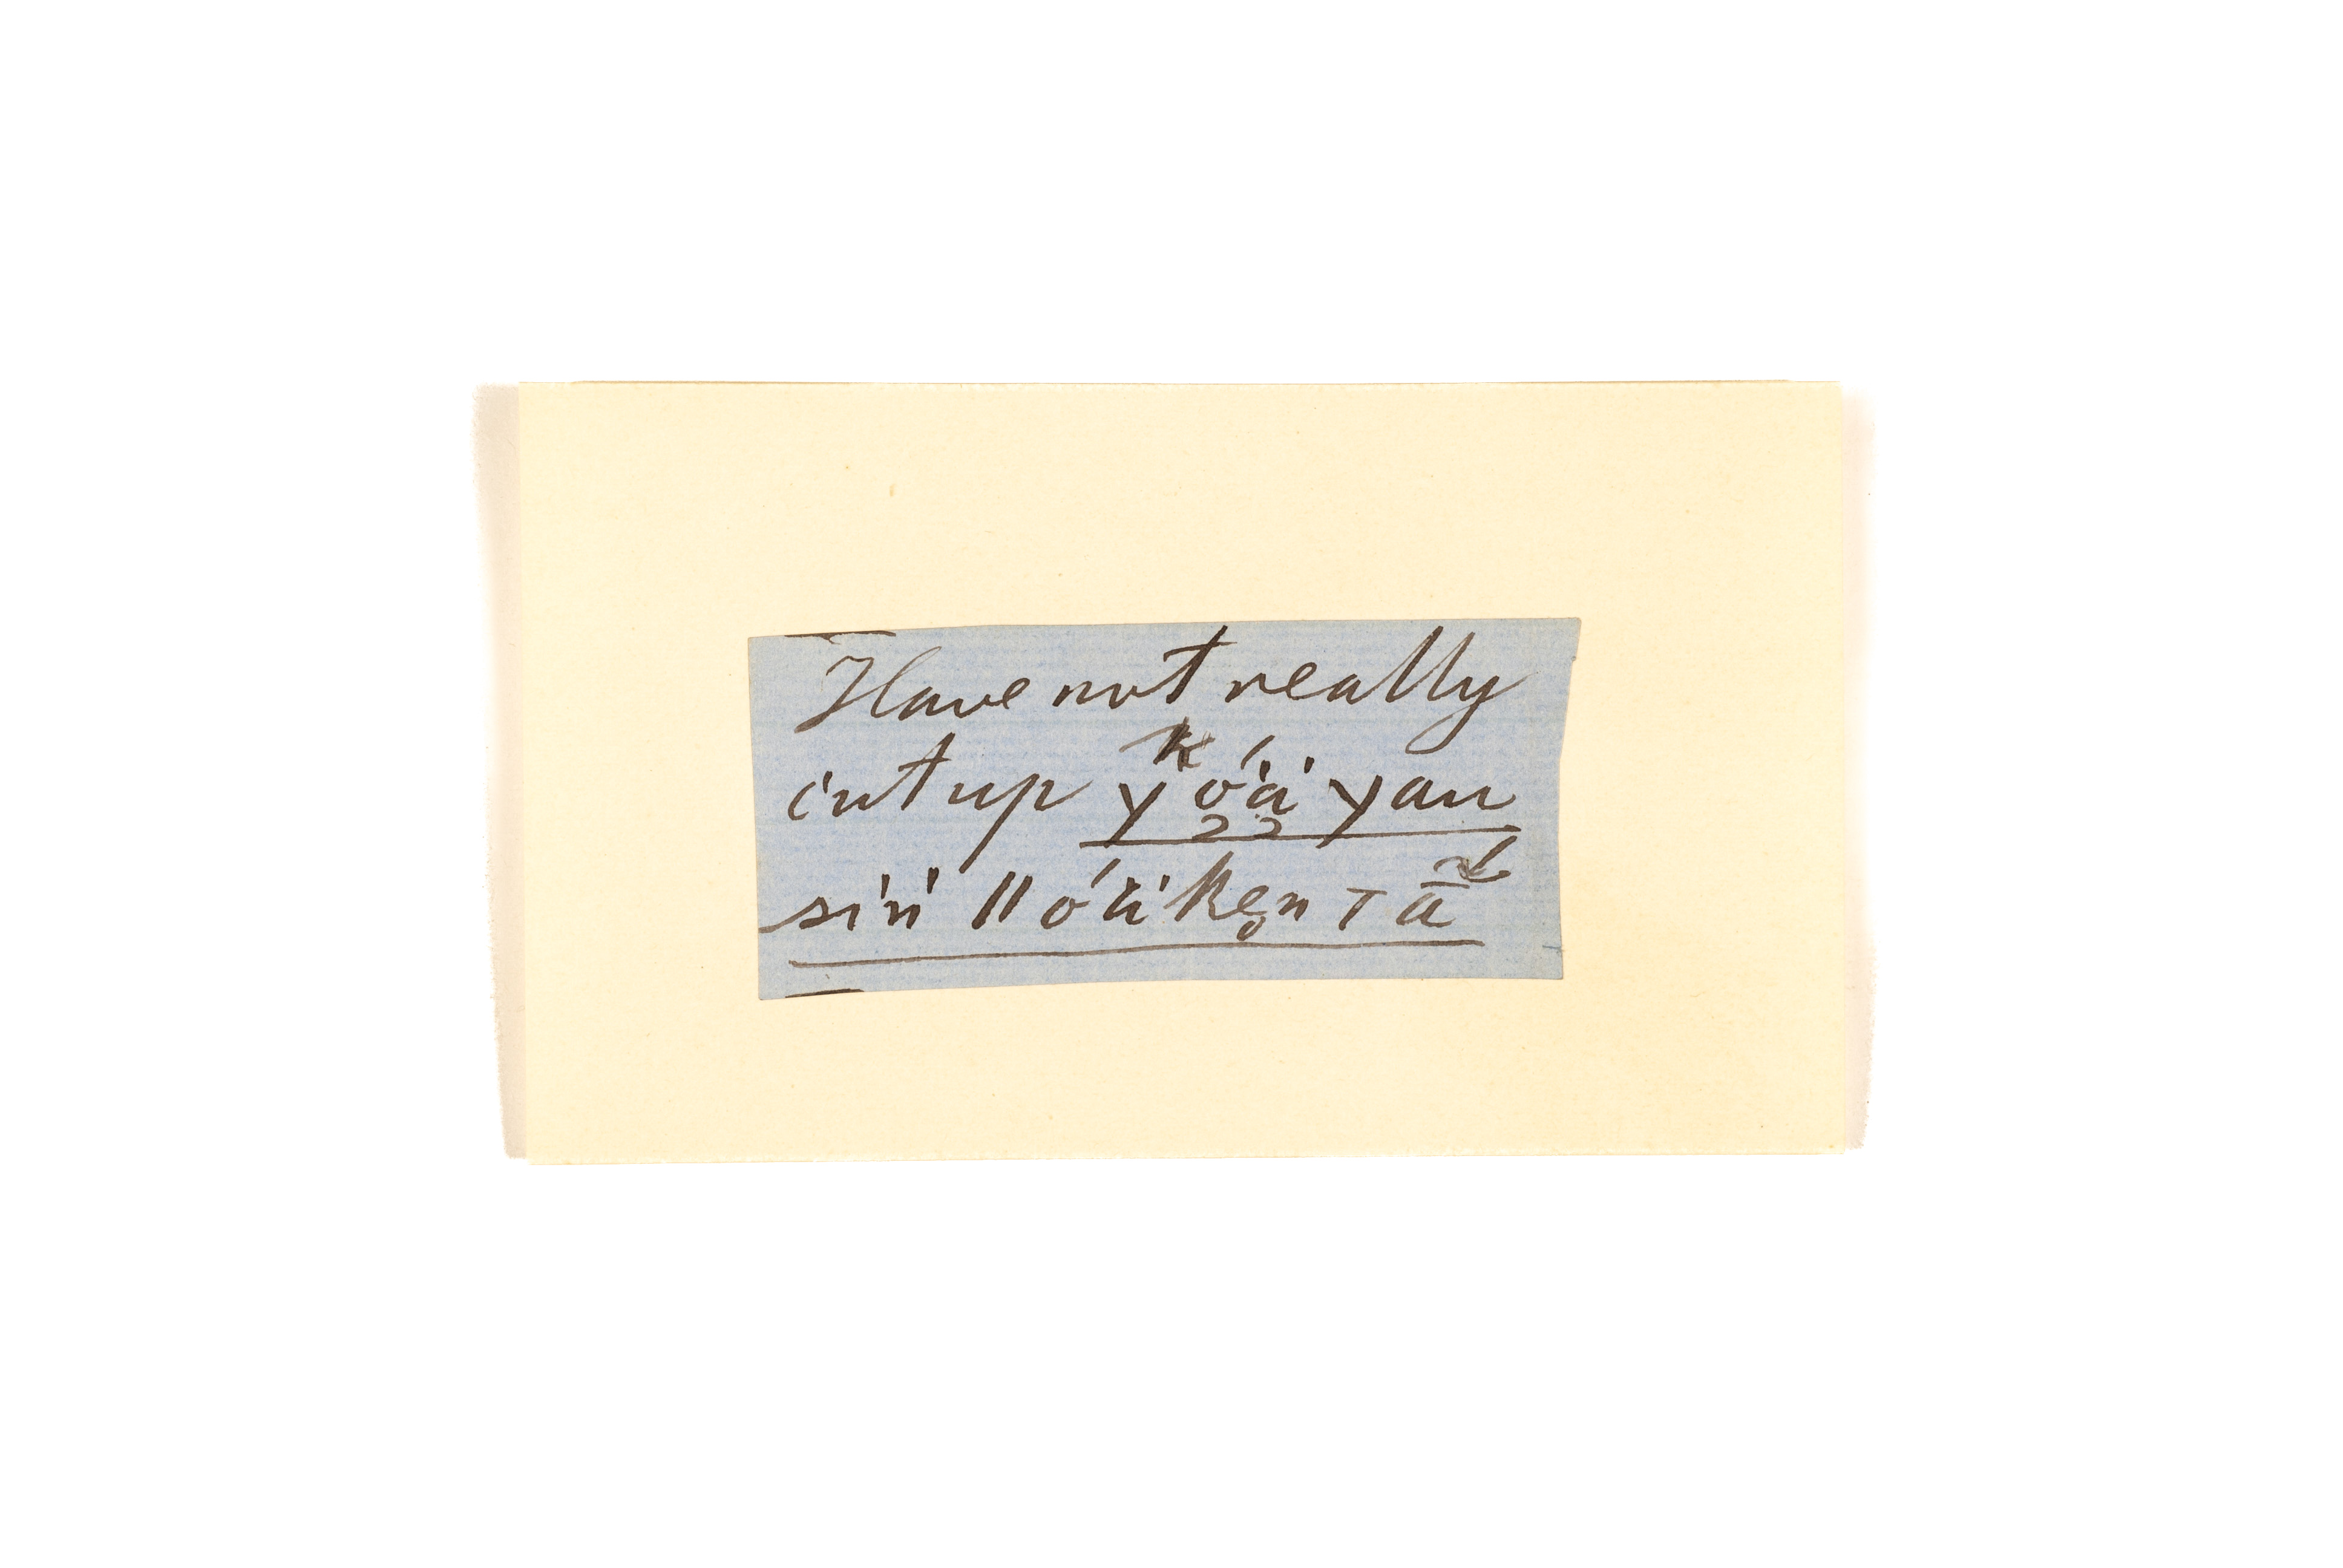 Have not really
cut up yḱóá yan
siń ǁ óäken τā